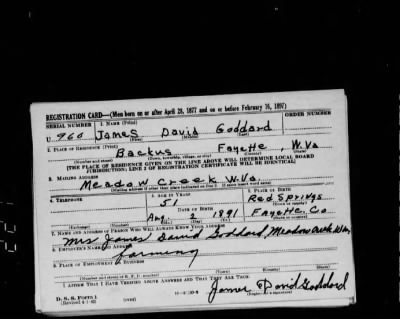 REGISTRATION CARD—(Men born on or after April 28, 1877 and on or before February 16, 1897)
SERIAL NUMBER 1. NAME (Print) ORDER NUMBER
U 960 James David Goddard
(First) (Middle) (Last)
2. PLACE OF RESIDENCE (Print)
Backus Fayette W.Va
(Number and street) (Town, township, village, or city) (County) (State)
[THE PLACE OF RESIDENCE GIVEN ON THE LINE ABOVE WILL DETERMINE LOCAL BOARD
JURISDICTION; LINE 2 OF REGISTRATION CERTIFICATE WILL BE IDENTICAL]
3. MAILING ADDRESS
Meadow Creek W.Va.
[Mailing address if other than place indicated on line 2. If same insert word same]
4. TELEPHONE 5. AGE IN YEARS 6. PLACE OF BIRTH
51 Red Springs
DATE OF BIRTH (Town or county)
Aug. 2 1891 Fayette, Co
(Mo.) (Day) (Yr.) (State or country)
7. NAME AND ADDRESS OF PERSON WHO WILL ALWAYS KNOW YOUR ADDRESS
Mrs James David Goddard, Meadow Creek W.Va.
8. EMPLOYER'S NAME AND ADDRESS
farming
9. PLACE OF EMPLOYMENT OR BUSINESS
(Number and street or R. F. D. number) (Town) (County) (State)
I AFFIRM THAT I HAVE VERIFIED ABOVE ANSWERS AND THAT THEY ARE TRUE.
D. S. S. Form 1
(Revised 4-1-42) (over)
James David Goddard
(Registrant's signature)